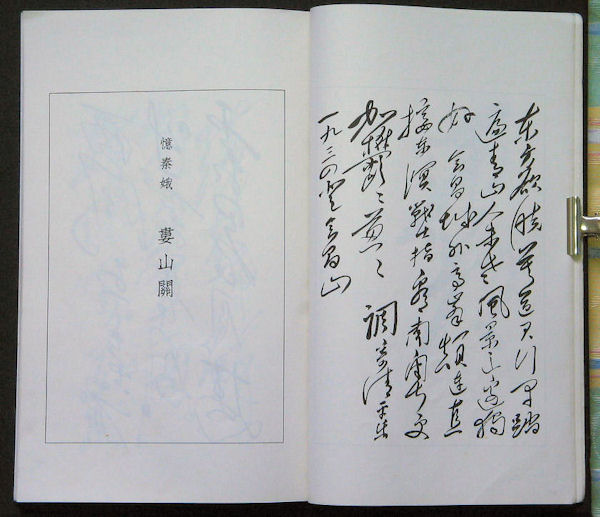 东方欲晓莫道君行早踏
遍青山人未老风景这边独
好会昌城外高峰颠连直
接东溟戰士指看南粤更
加欝〻葱〻 調寄清平乐
一九三四登会昌山
憶秦娥 婁山關